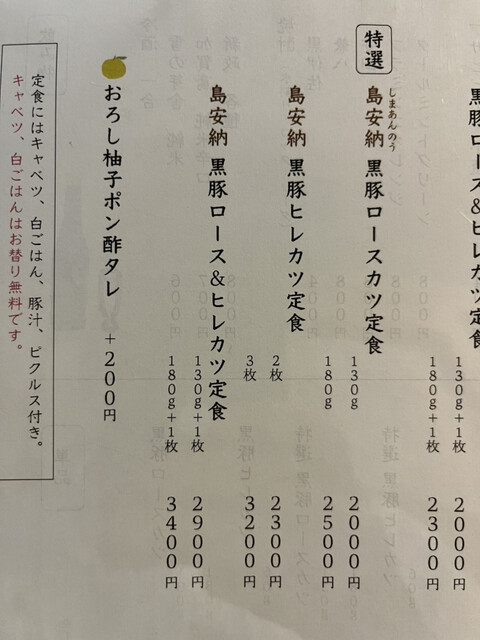 黒豚ロース&ヒレカツ定食
130g+1枚 2000円
180g+1枚 2300円
特選
島安納 黒豚ロースカツ定食
しまあんのう
130g 2000円
180g 2500円
島安納 黒豚ヒレカツ定食
2枚 2300円
3枚 3200円
島安納 黒豚ロース&ヒレカツ定食
130g+1枚 2900円
180g+1枚 3400円
おろし柚子ポン酢タレ +200円
定食にはキャベツ、白ごはん、豚汁、ピクルス付き。
キャベツ、白ごはんはお替り無料です。